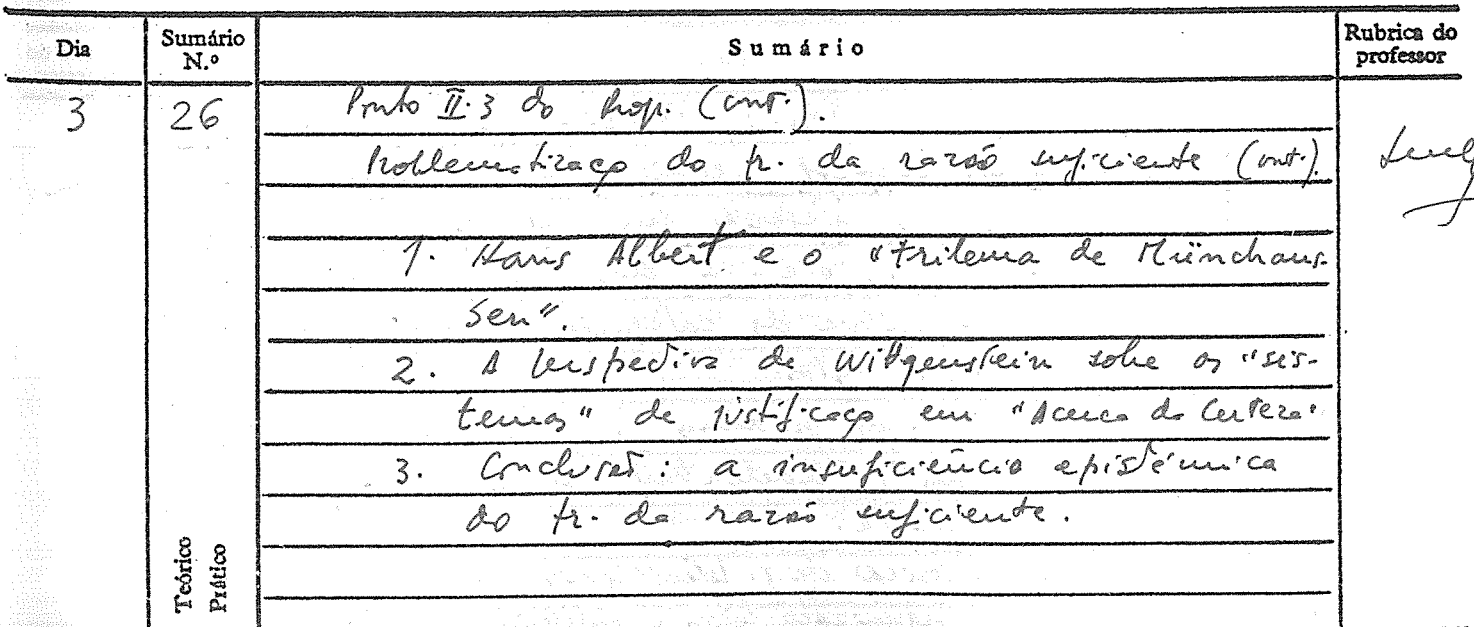 Dia Sumário N.º Sumário Rubrica do professor
3 26 Ponto II.3 do Prop. (cont.).
Problematização do pr. da razão suficiente (cont.).
1. Hans Albert e o "Trilema de Münchaus-
sen".
2. A perspectiva de Wittgenstein sobre os "sis-
temas" de justificação em "Acerca da Certeza"
3. Conclusão: a insuficiência epistémica
do pr. da razão suficiente.
Teórico
Prático